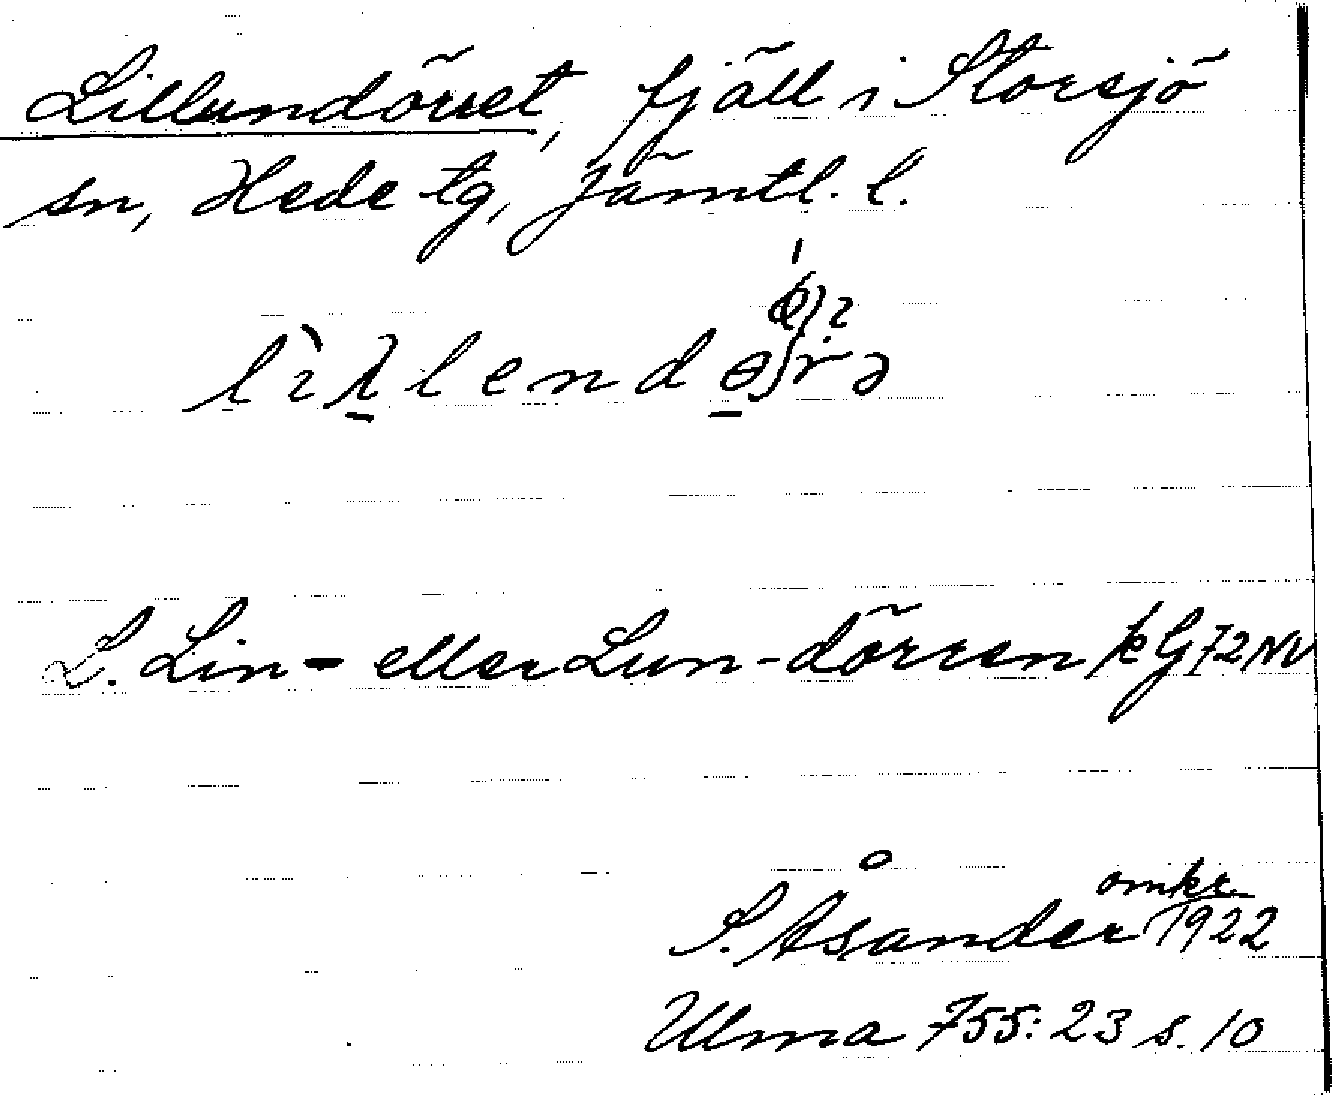 Lillundörret, fjäll i Storsjö
sn, Hede tg, Jämtl. l.
L. Lin- eller Lun-dörren kG 72 NV
S. Åsander omkr. 1922
Ulma 755:23 s. 10